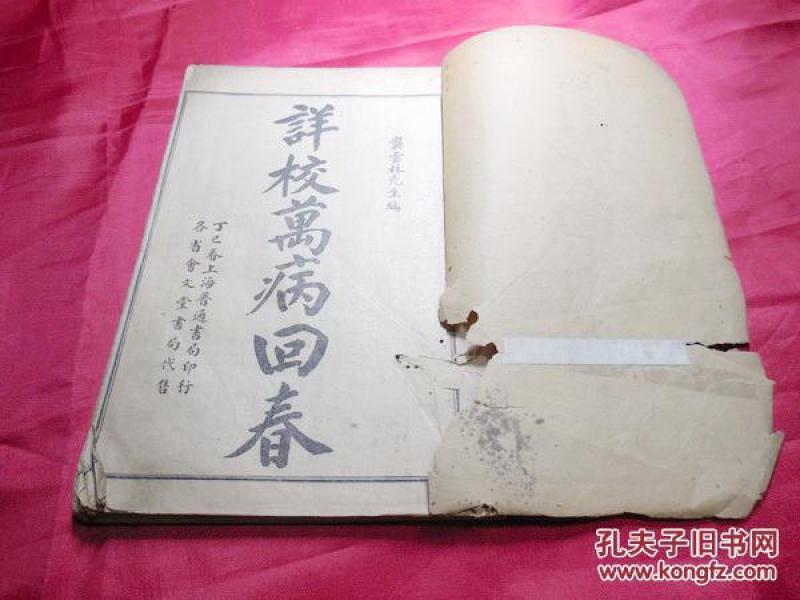 龔雲林先生編
詳校萬病回春
丁巳春上海普通書局印行
各省會文堂書局代售
孔夫子旧书网
www.kongfz.com